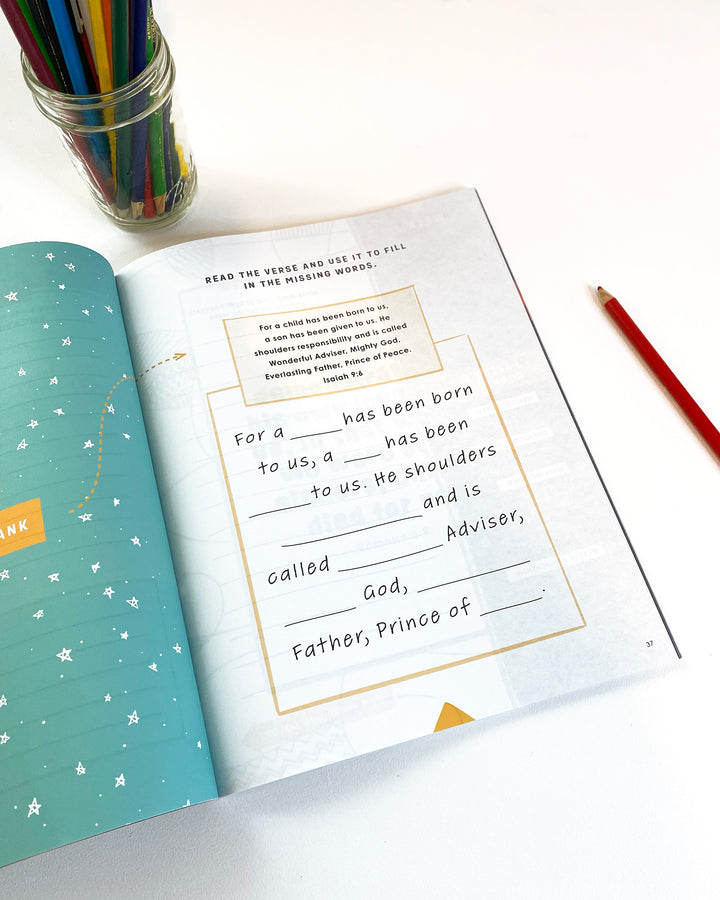 ANK
READ THE VERSE AND USE IT TO FILL
IN THE MISSING WORDS.
For a child has been born to us,
a son has been given to us. He
shoulders responsibility and is called
Wonderful Adviser, Mighty God,
Everlasting Father, Prince of Peace.
Isaiah 9:6
For a _____ has been born
to us, a ____ has been
_______ to us. He shoulders
________________ and is
called ____________ Adviser,
________ God, _____________
Father, Prince of _______.
37